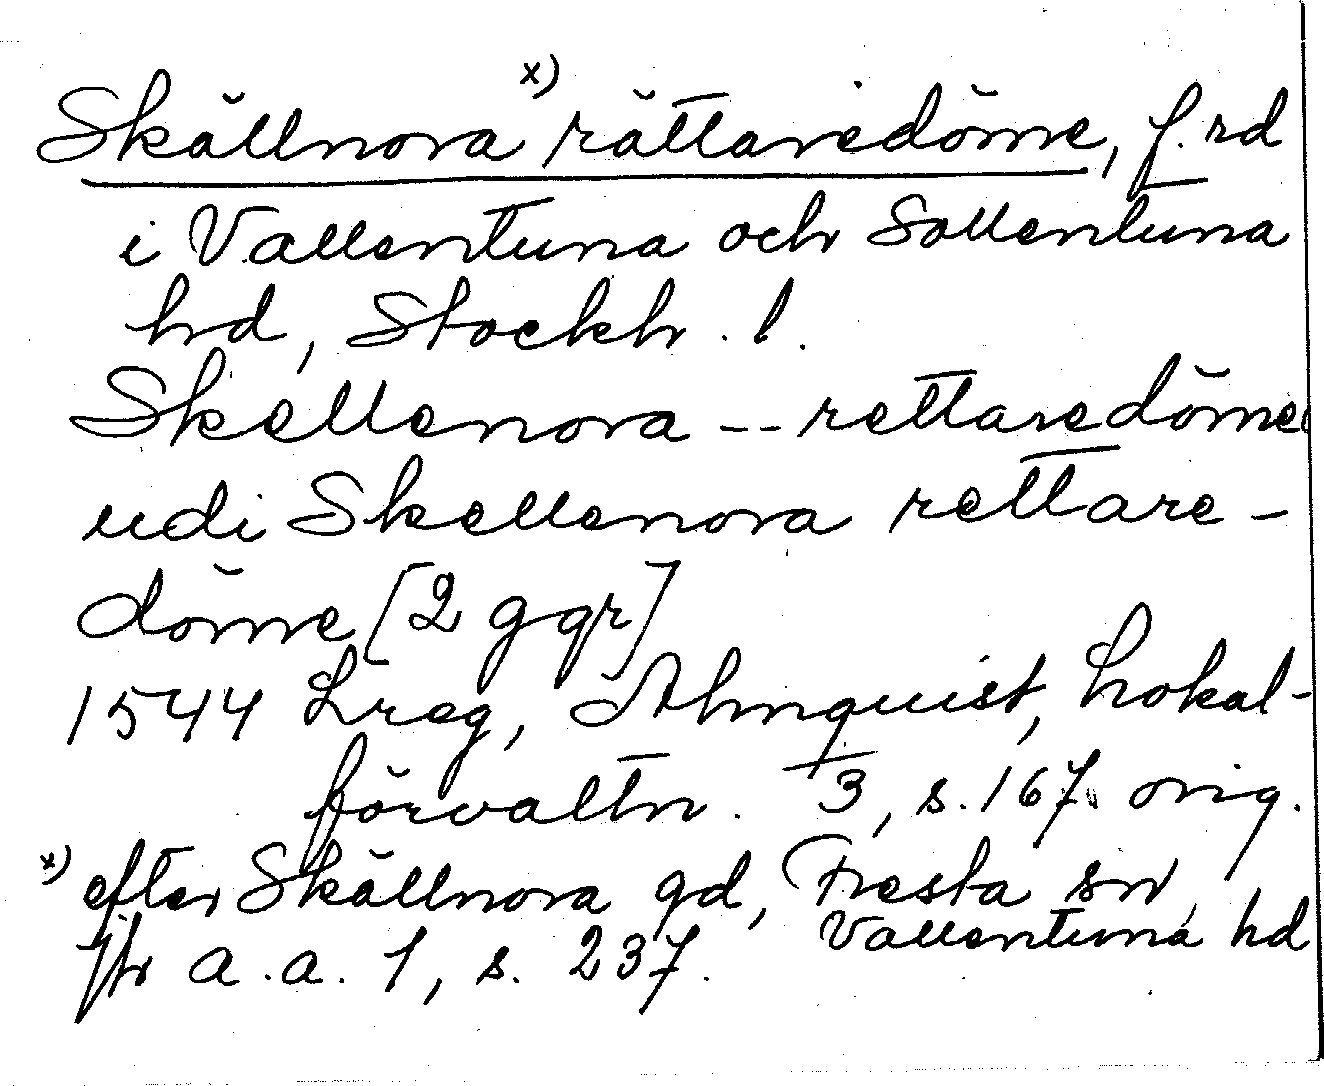 Skällnora x) rättaredöme, f. rd
i Vallentuna och Sollentuna
hd, Stockh. l.
Skellenora -- rettaredöme
udi Skellenora rettare-
döme [2 ggr]
1544 Lreg, Almquist, Lokal-
förvaltn. 3, s. 167. orig.
x) efter Skällnora gd, Fresta sn,
Vallentuna hd
Jfr a. a. 1, s. 237.